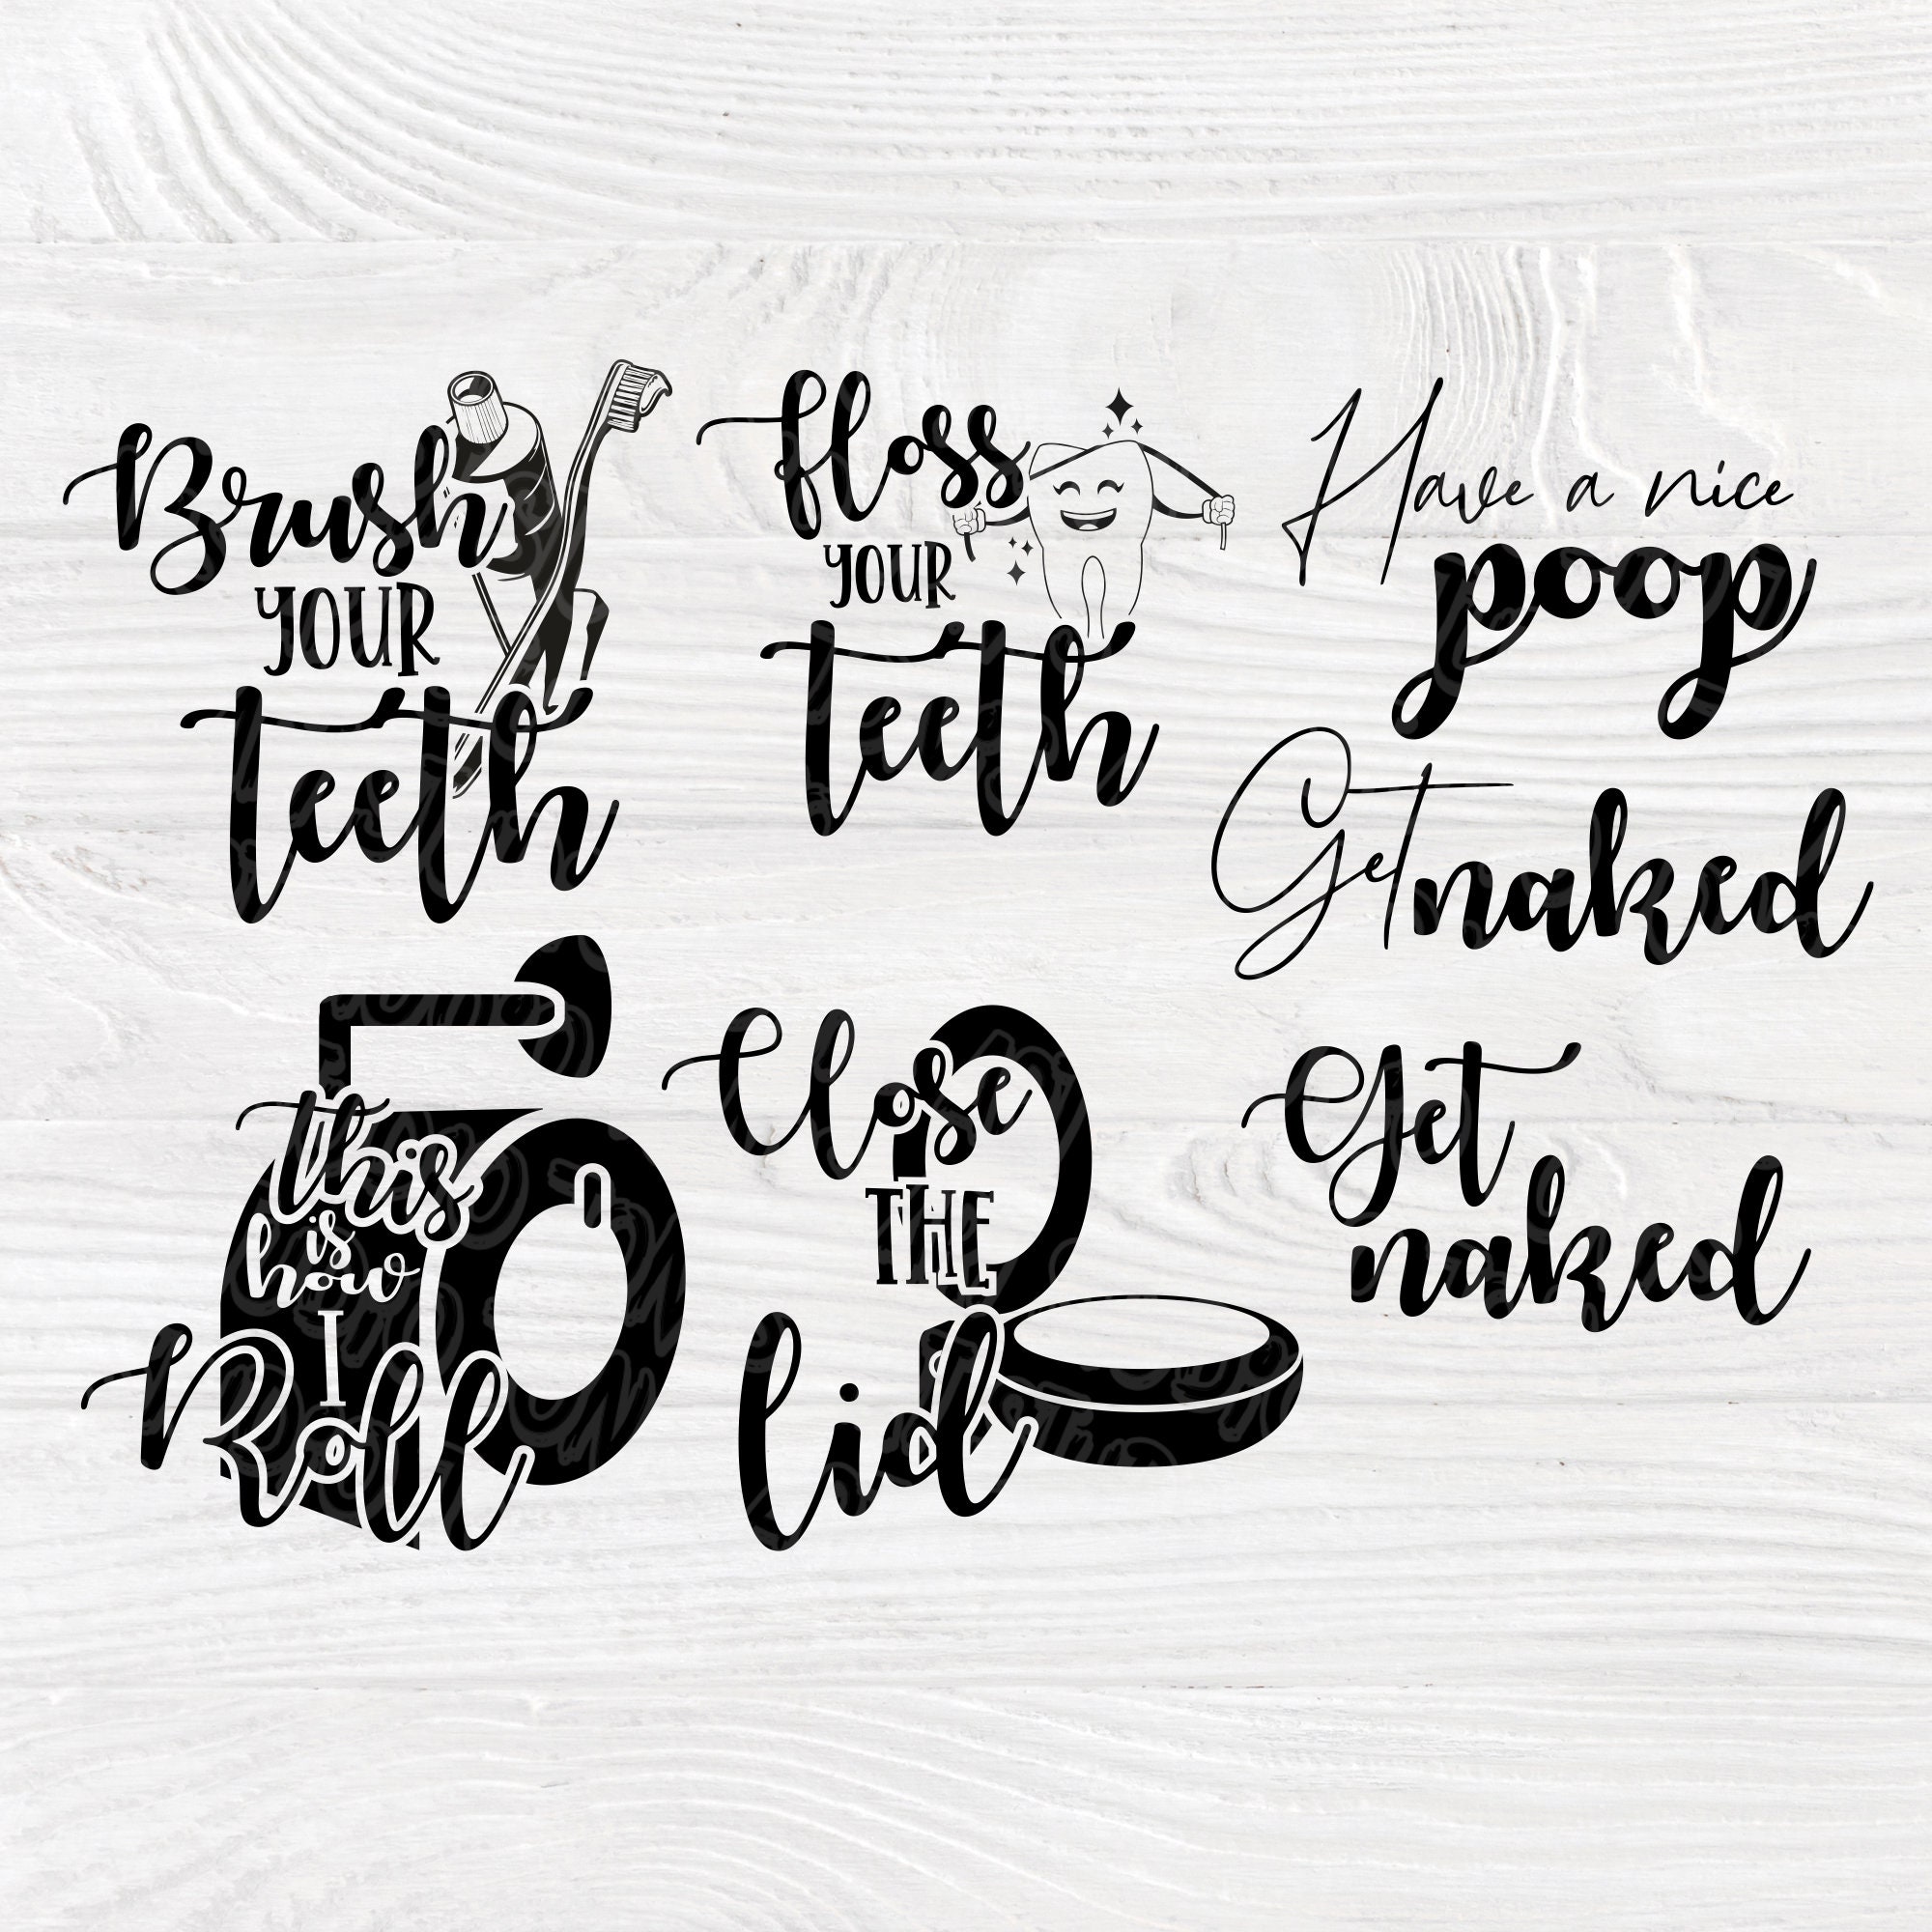 Brush
YOUR
teeth
floss
YOUR
teeth
Have a nice
poop
Get naked
this
is
how
I
Roll
Close
THE
lid
Get
naked